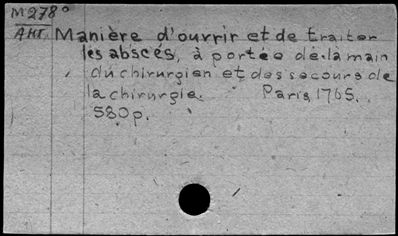 M278°
AHT. Manière d'ouvrir et de traiter
les abscés, à portée de la main
du chirurgien et des secours de
la chirurgie. Paris, 1765.
580p.